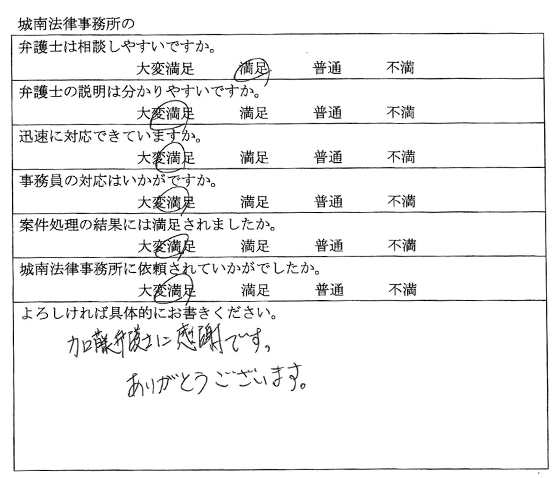 城南法律事務所の
弁護士は相談しやすいですか。
大変満足 満足 普通 不満
弁護士の説明は分かりやすいですか。
大変満足 満足 普通 不満
迅速に対応できていますか。
大変満足 満足 普通 不満
事務員の対応はいかがですか。
大変満足 満足 普通 不満
案件処理の結果には満足されましたか。
大変満足 満足 普通 不満
城南法律事務所に依頼されていかがでしたか。
大変満足 満足 普通 不満
よろしければ具体的にお書きください。
加藤弁護士に感謝です。
ありがとうございます。